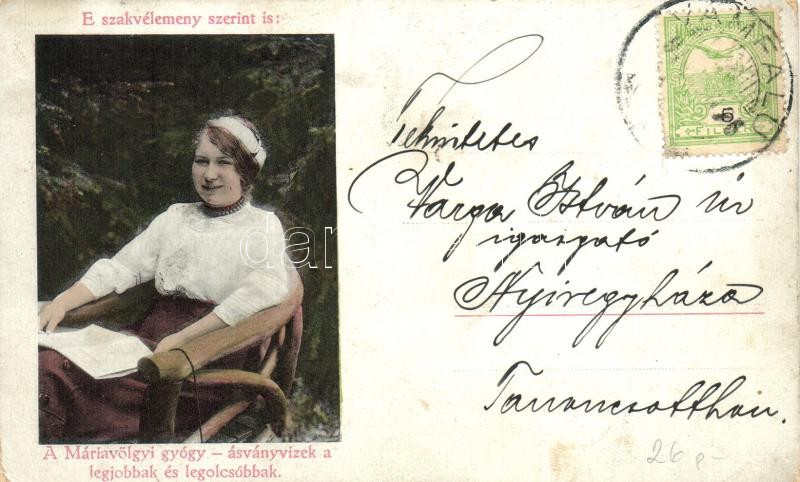 E szakvélemeny szerint is:
A Máriavölgyi gyógy – ásványvizek a
legjobbak és legolcsóbbak.
Tekintetes
Varga István úr
igazgató
Nyiregyháza
Tanoncotthon.
5
FILLÉR
26 p-